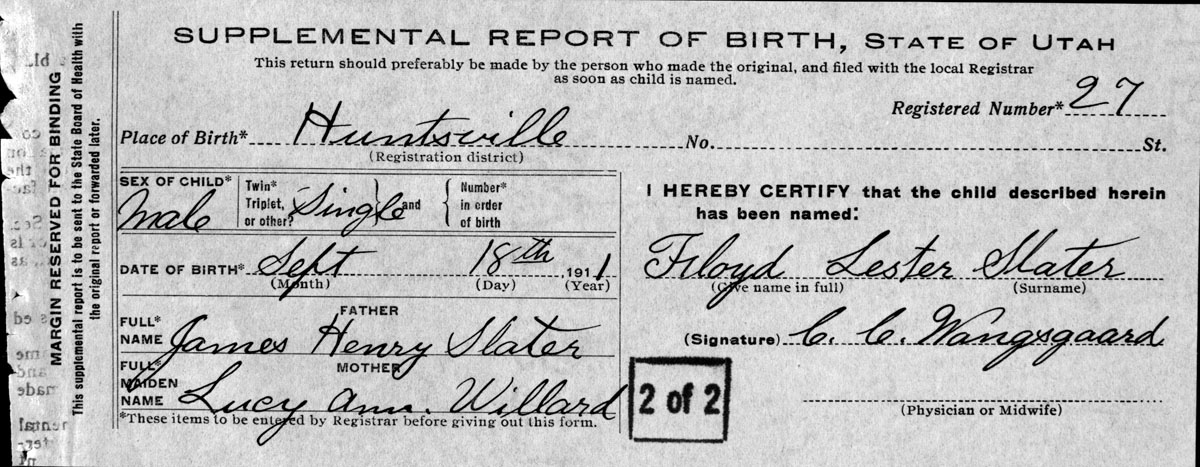 SUPPLEMENTAL REPORT OF BIRTH, STATE OF UTAH
This return should preferably be made by the person who made the original, and filed with the local Registrar
as soon as child is named.
Registered Number* 27
Place of Birth* Huntsville No. St.
(Registration district)
SEX OF CHILD* Male Twin* Triplet, or other? Single and Number* in order of birth
DATE OF BIRTH* Sept 18th 1911
(Month) (Day) (Year)
FATHER
FULL* NAME James Henry Slater
MOTHER
FULL* MAIDEN NAME Lucy Ann. Willard
*These items to be entered by Registrar before giving out this form.
I HEREBY CERTIFY that the child described herein
has been named:
Floyd Lester Slater
(Give name in full) (Surname)
(Signature) C. C. Wangsgaard
(Physician or Midwife)
2 of 2
MARGIN RESERVED FOR BINDING
This supplemental report is to be sent to the State Board of Health with
the original report or forwarded later.